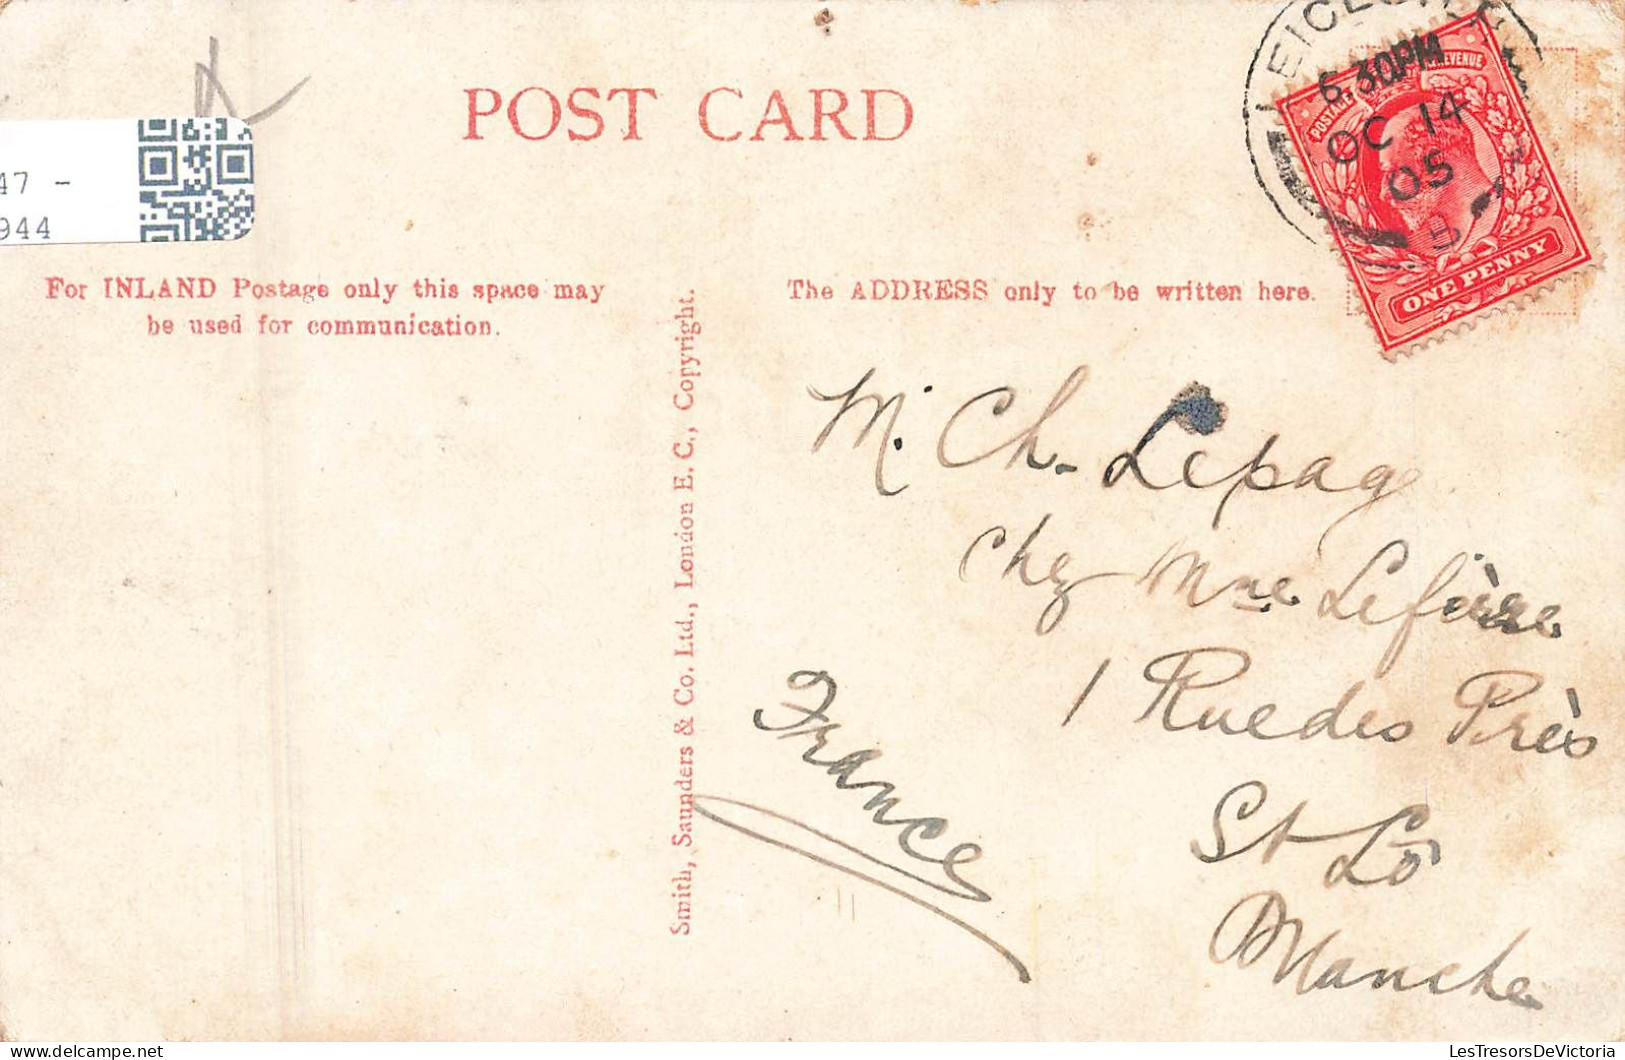 POST CARD
47 -
944
For INLAND Postage only this space may
be used for communication.
The ADDRESS only to be written here.
Smith, Saunders & Co. Ltd., London E. C., Copyright.
6.30PM
OC 14
05
POSTAGE REVENUE
ONE PENNY
M. Ch. Lepage
chez Mme
1 Rue des Près
St Lô
Manche
France
LesTresorsDeVictoria